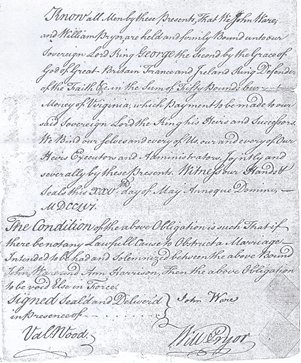 Know all Men by these Presents, That We John Ware,
and William Pryor are held and firmly Bound unto our
Sovereign Lord King George the Second by the Grace of
God of Great-Britain France and Ireland King Defender
of the Faith &c. in the Sum of Fifty Pounds
Money of Virginia; which Payment to be made to our
said Sovereign Lord the King his Heirs and Successors
We Bind our selves and every of Us our and every of Our
Heirs Executors and Administrators, Joyntly and
severally by these Presents. Witness our Hands &
Seals this day of May Annoque Domini
The Condition of the above Obligation is such That if
there be not any Lawfull Cause to Obstruct a Marriage
Intended to be had and Solemnized between the above Bound
John Ware and Ann Harrison, Then the above Obligation
to be void Else in Force.
Signed Seald and Deliverd
in Presence of
John Ware
Val. Wood.
Will Pryor